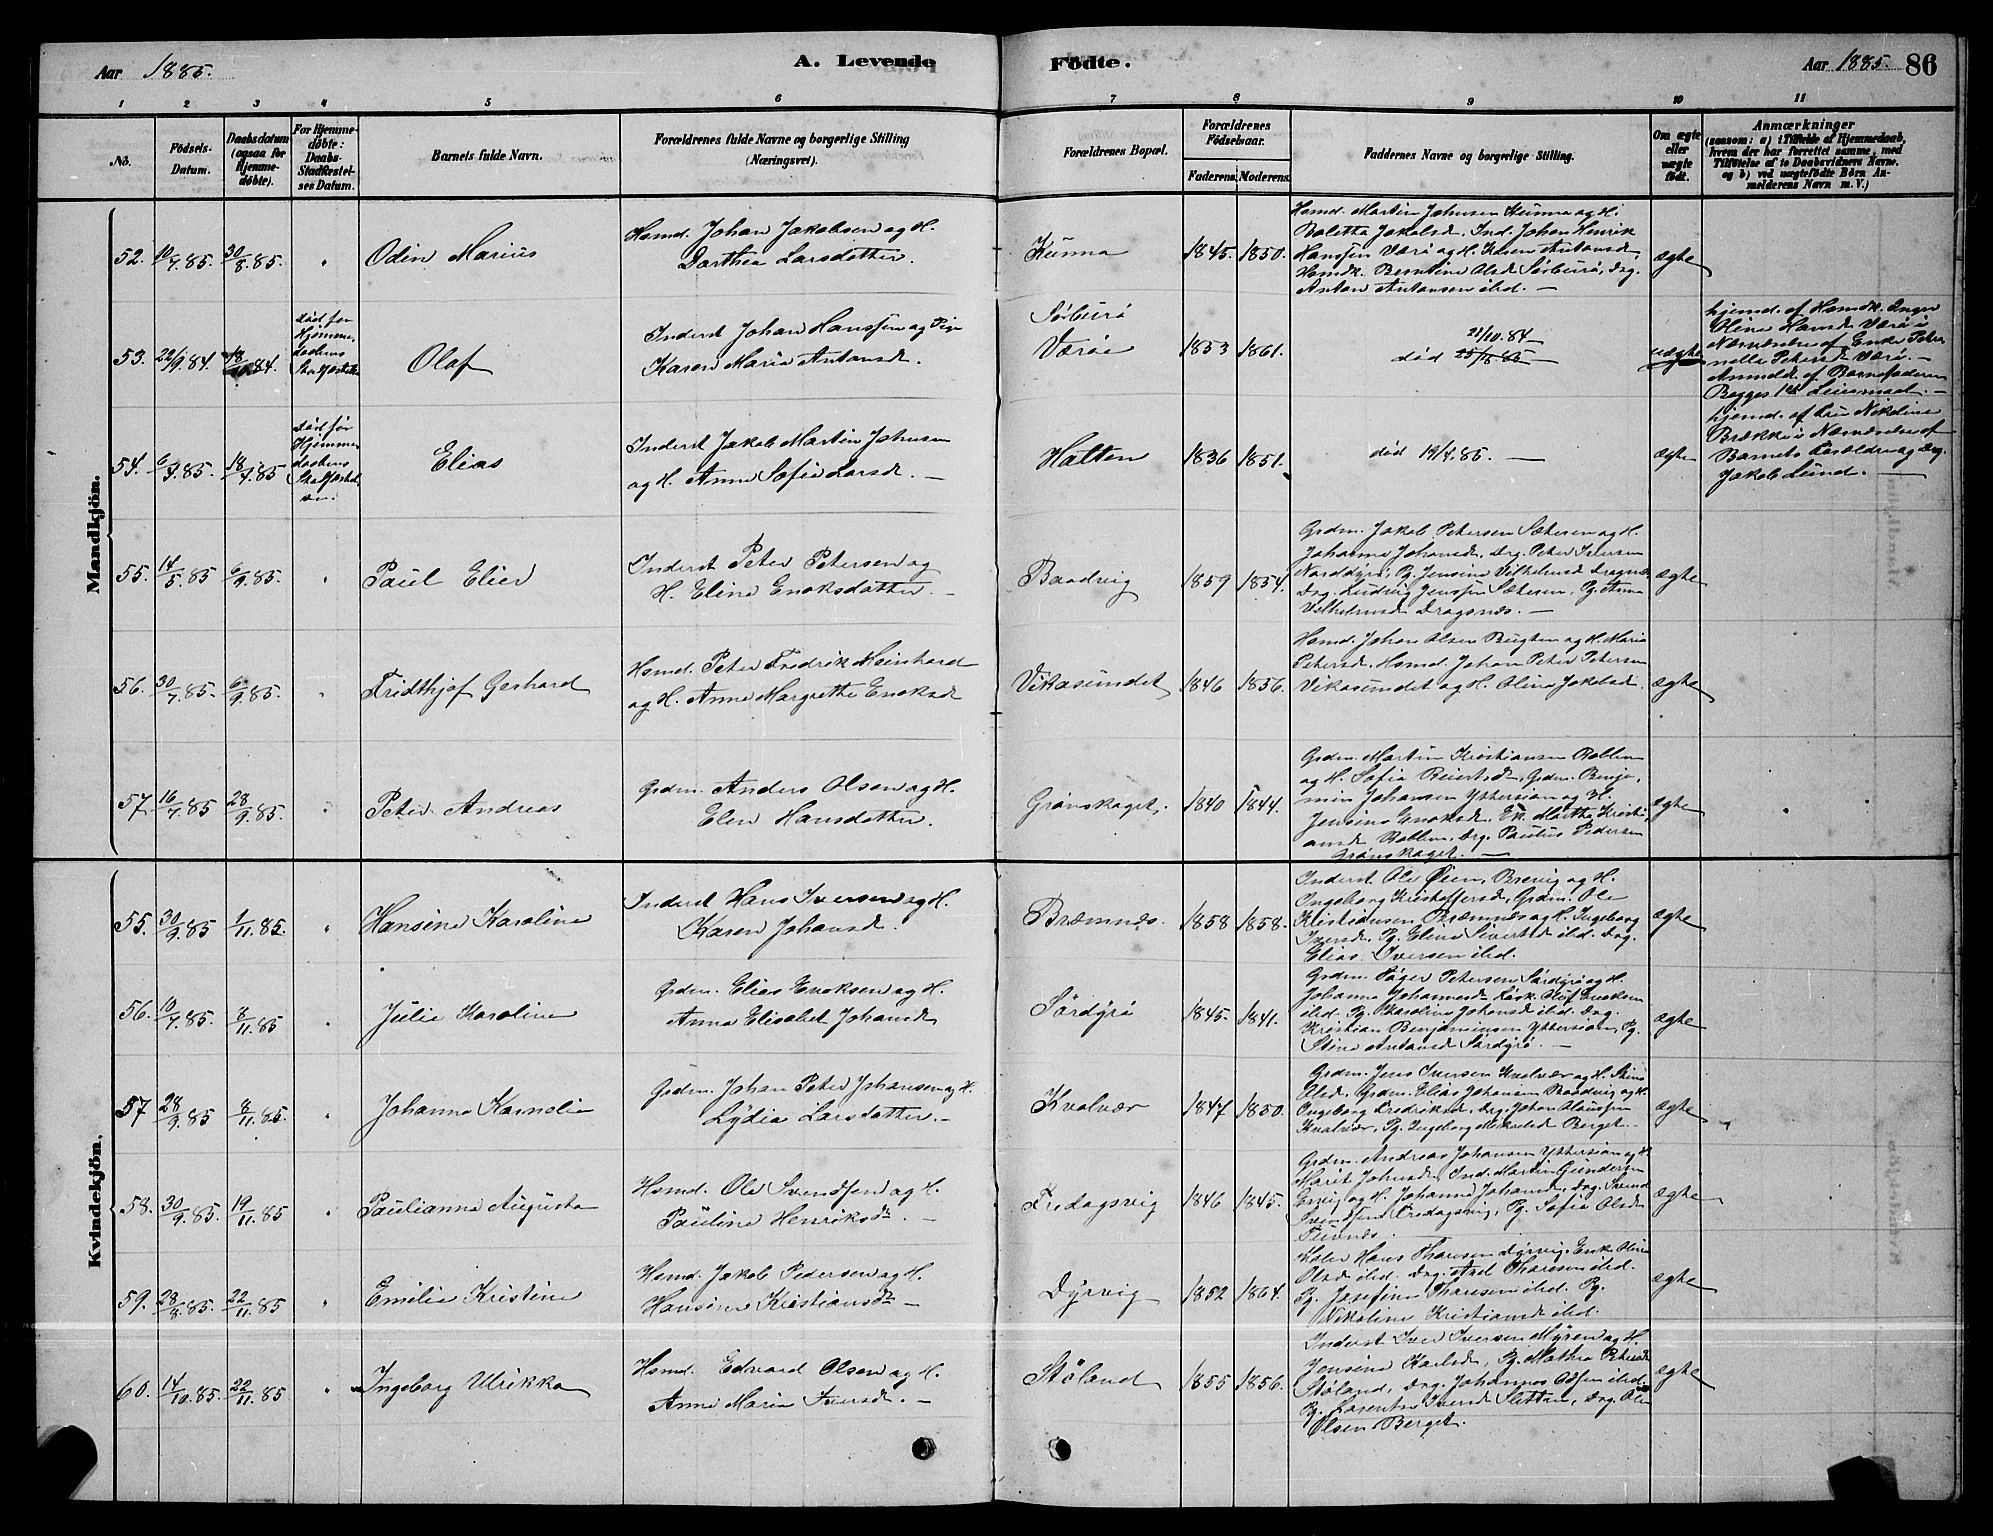 Aar 1885.
A. Levende
Födte.
Aar 1885.
86
1 2 3 4 5 6 7 8 9 10 11
No.
Födsels-
Datum.
Daabsdatum
(ogsaa for
Hjemme-
døbte).
For Hjemme-
døbte:
Daabs-
Stadfæstel-
ses Datum.
Barnets fulde Navn.
Forældrenes fulde Navne og borgerlige Stilling
(Næringsvei).
Forældrenes Bopæl.
Forældrenes
Födselsaar.
Faderens.
Moderens.
Faddernes Navne og borgerlige Stilling.
Om ægte
eller
uægte
födt.
Anmærkninger
(saasom: a) i Tilfælde af Hjemmedaab,
hvem der har forrettet samme, med
Tilføielse af to Daabsvidners Navne.
og b) ved uægtefödte Börn An-
melderens Navn m. V.)
Mandkjön.
52. 10/7.85. 30/8.85. " Odin Marius
Hsmd. Johan Jakobsen og H.
Dorthea Larsdatter.
Kunna 1845. 1850.
Hsmd. Martin Johnsen Kunna og H.
Baletta Jakobsd. Ind. Johan Henrik
Hanssen Værö og H. Karen Antonsd.
Hsmdk. Berntine Olsd. Sörburö, Drg.
Anton Antonsen ibd. —
ægte
53. 22/9.84. 18/10.84.
død før
Hjemme-
daabens
Stadfæstelse
Olaf
Inderst Johan Hanssen og Pige
Karen Maria Antonsd.
Sörburö
Væröi 1853 1861.
21/10.84
død 25/8.85
uægte
hjemd. af Hsmdk. Inger
Olina Hansd. Værö i
Nærværelse af Enke Peter-
nella Petersd. Værö. —
Anmeldt af Barnefaderen
Begges 1ste Leiermaal. —
54. 6/4.85. 18/4.85
død før
Hjemme-
daabens
Stadfæstel-
se.
Elias
Inderst Jakob Martin Johnsen
og H. Anne Sofie Larsd. —
Halten 1836 1851.
død 19/4.85. —
ægte
hjemd. af Fru Nikoline
Brække i Nærværelse af
Barnets Forældre og Drg.
Jakob Lund. —
55. 14/5.85 6/9.85. " Paul Elier
Inderst Peter Petersen og
H. Eline Enoksdatter. —
Baadvig 1859 1854.
Grdm. Jakob Petersen Sætesen og H.
Johanna Johansd. Drg. Peter Iversen
Norddyrö, Pg. Jensine Vilhelmsd. Dragsnes
Drg. Ludvig Jenssen Sætesen, Pg. Anna
Vilhelmsd. Dragsnes. —
ægte
56. 30/7.85. 6/9.85. " Fridthjof Gerhard
Hsmd. Peter Fredrik Meinhard
og H. Anne Margrethe Enoksd
Vikasundet 1846 1856.
Hsmd. Johan Olsen Bugten og H. Maria
Petersd. Hsmd. Johan Peter Petersen
Vikasundet og H. Olina Jakobsd.
ægte
57. 16/7.85 28/9.85. " Peter Andreas
Grdm. Anders Olsen og H.
Elen Hansdatter.
Grönskaget. 1840 1844.
Grdm. Martin Kristiansen Rabben
og H. Sofia Reiertsd. Grdm. Benja-
min Johansen Yttersian og H.
Jensine Enoksd. Ek. Martha Kristi-
ansd. Rabben, Drg. Paulus Pedersen
Grönskaget. —
ægte
Kvindekjön.
55. 30/9.85 1/11.85. " Hansine Karoline
Inderst Hans Iversen og H.
Karen Johansd.
Bræmnes. 1858 1858.
Inderst Ole Øien, Brevig og H.
Ingeborg Kristoffersd. Grdm. Ole
Kristiansen Bræmnes og H. Ingeborg
Iversd. Pg. Eline Sivertsd. ibd. Drg.
Elias Iversen ibd.
ægte
56. 10/7.85. 8/11.85 " Julie Karoline
Grdm. Elias Enoksen og H.
Anna Elisabet Johansd
Sördyrö 1845. 1841.
Grdm. Petersen Sördyrö og H.
Johanna Johannesd. Olüf Enoksen
ibd. Pg. Karoline Johansd. ibd. Drg.
Kristian Benjaminsen Yttersian, Pg.
Stine Antonsd. Sördyrö. —
ægte
57 28/9.85 8/11.85. " Johanna Kornelia
Grdm. Johan Peter Johansen og H.
Lydia Larsdatter. —
Kvalvær 1847 1850.
Grdm. Jens Iversen Kvalvær og H. Stine
Olsd. Grdm. Elias Johansen Baadvig og H.
Ingeborg Fredriksd. Drg. Johan Olaussen
Kvalvær, Pg. Ingeborg Mikalsd. Berget.
ægte
58. 30/9.85. 19/11.85 " Paulianna Augusta
Hsmd. Ole Svendsen og H.
Pauline Henriksdr. —
Fredagsvig 1846 1845.
Grdm. Andreas Johansen Yttersian og H
Marit Johnsd. Ind. Martin Gundersen
Ervig og H. Johanna Johansd. Drg. Svend
Svendsen Fredagsvig, Pg. Sofia Olsd.
ægte
59. 28/8.85. 22/11.85 " Emilie Kristine
Hsmd. Jakob Pedersen og H.
Hansine Kristiansdr. —
Dyrvig 1852 1864.
Hans Thoresen Dyrvig, Enk. Olina
Olsd. ibd. Drg. Axel Thoresen ibd.
Pg. Josefine Thoresen ibd. Pg.
Nikoline Kristiansd. ibd.
ægte
60. 14/10.85. 22/11.85 " Ingeborg Ulrikka
Hsmd. Edvard Olsen og H.
Anne Marie Iversd. —
Stöland 1855 1856.
Inderst Iver Iversen Myren og H.
Jensine Karlsd., Pg. Mathea Petersd.
Stöland, Drg. Johannes Olsen ibd.
Pg. Laurentse Iversd. Sletten, Drg. Ole
Olsen Berget.
ægte